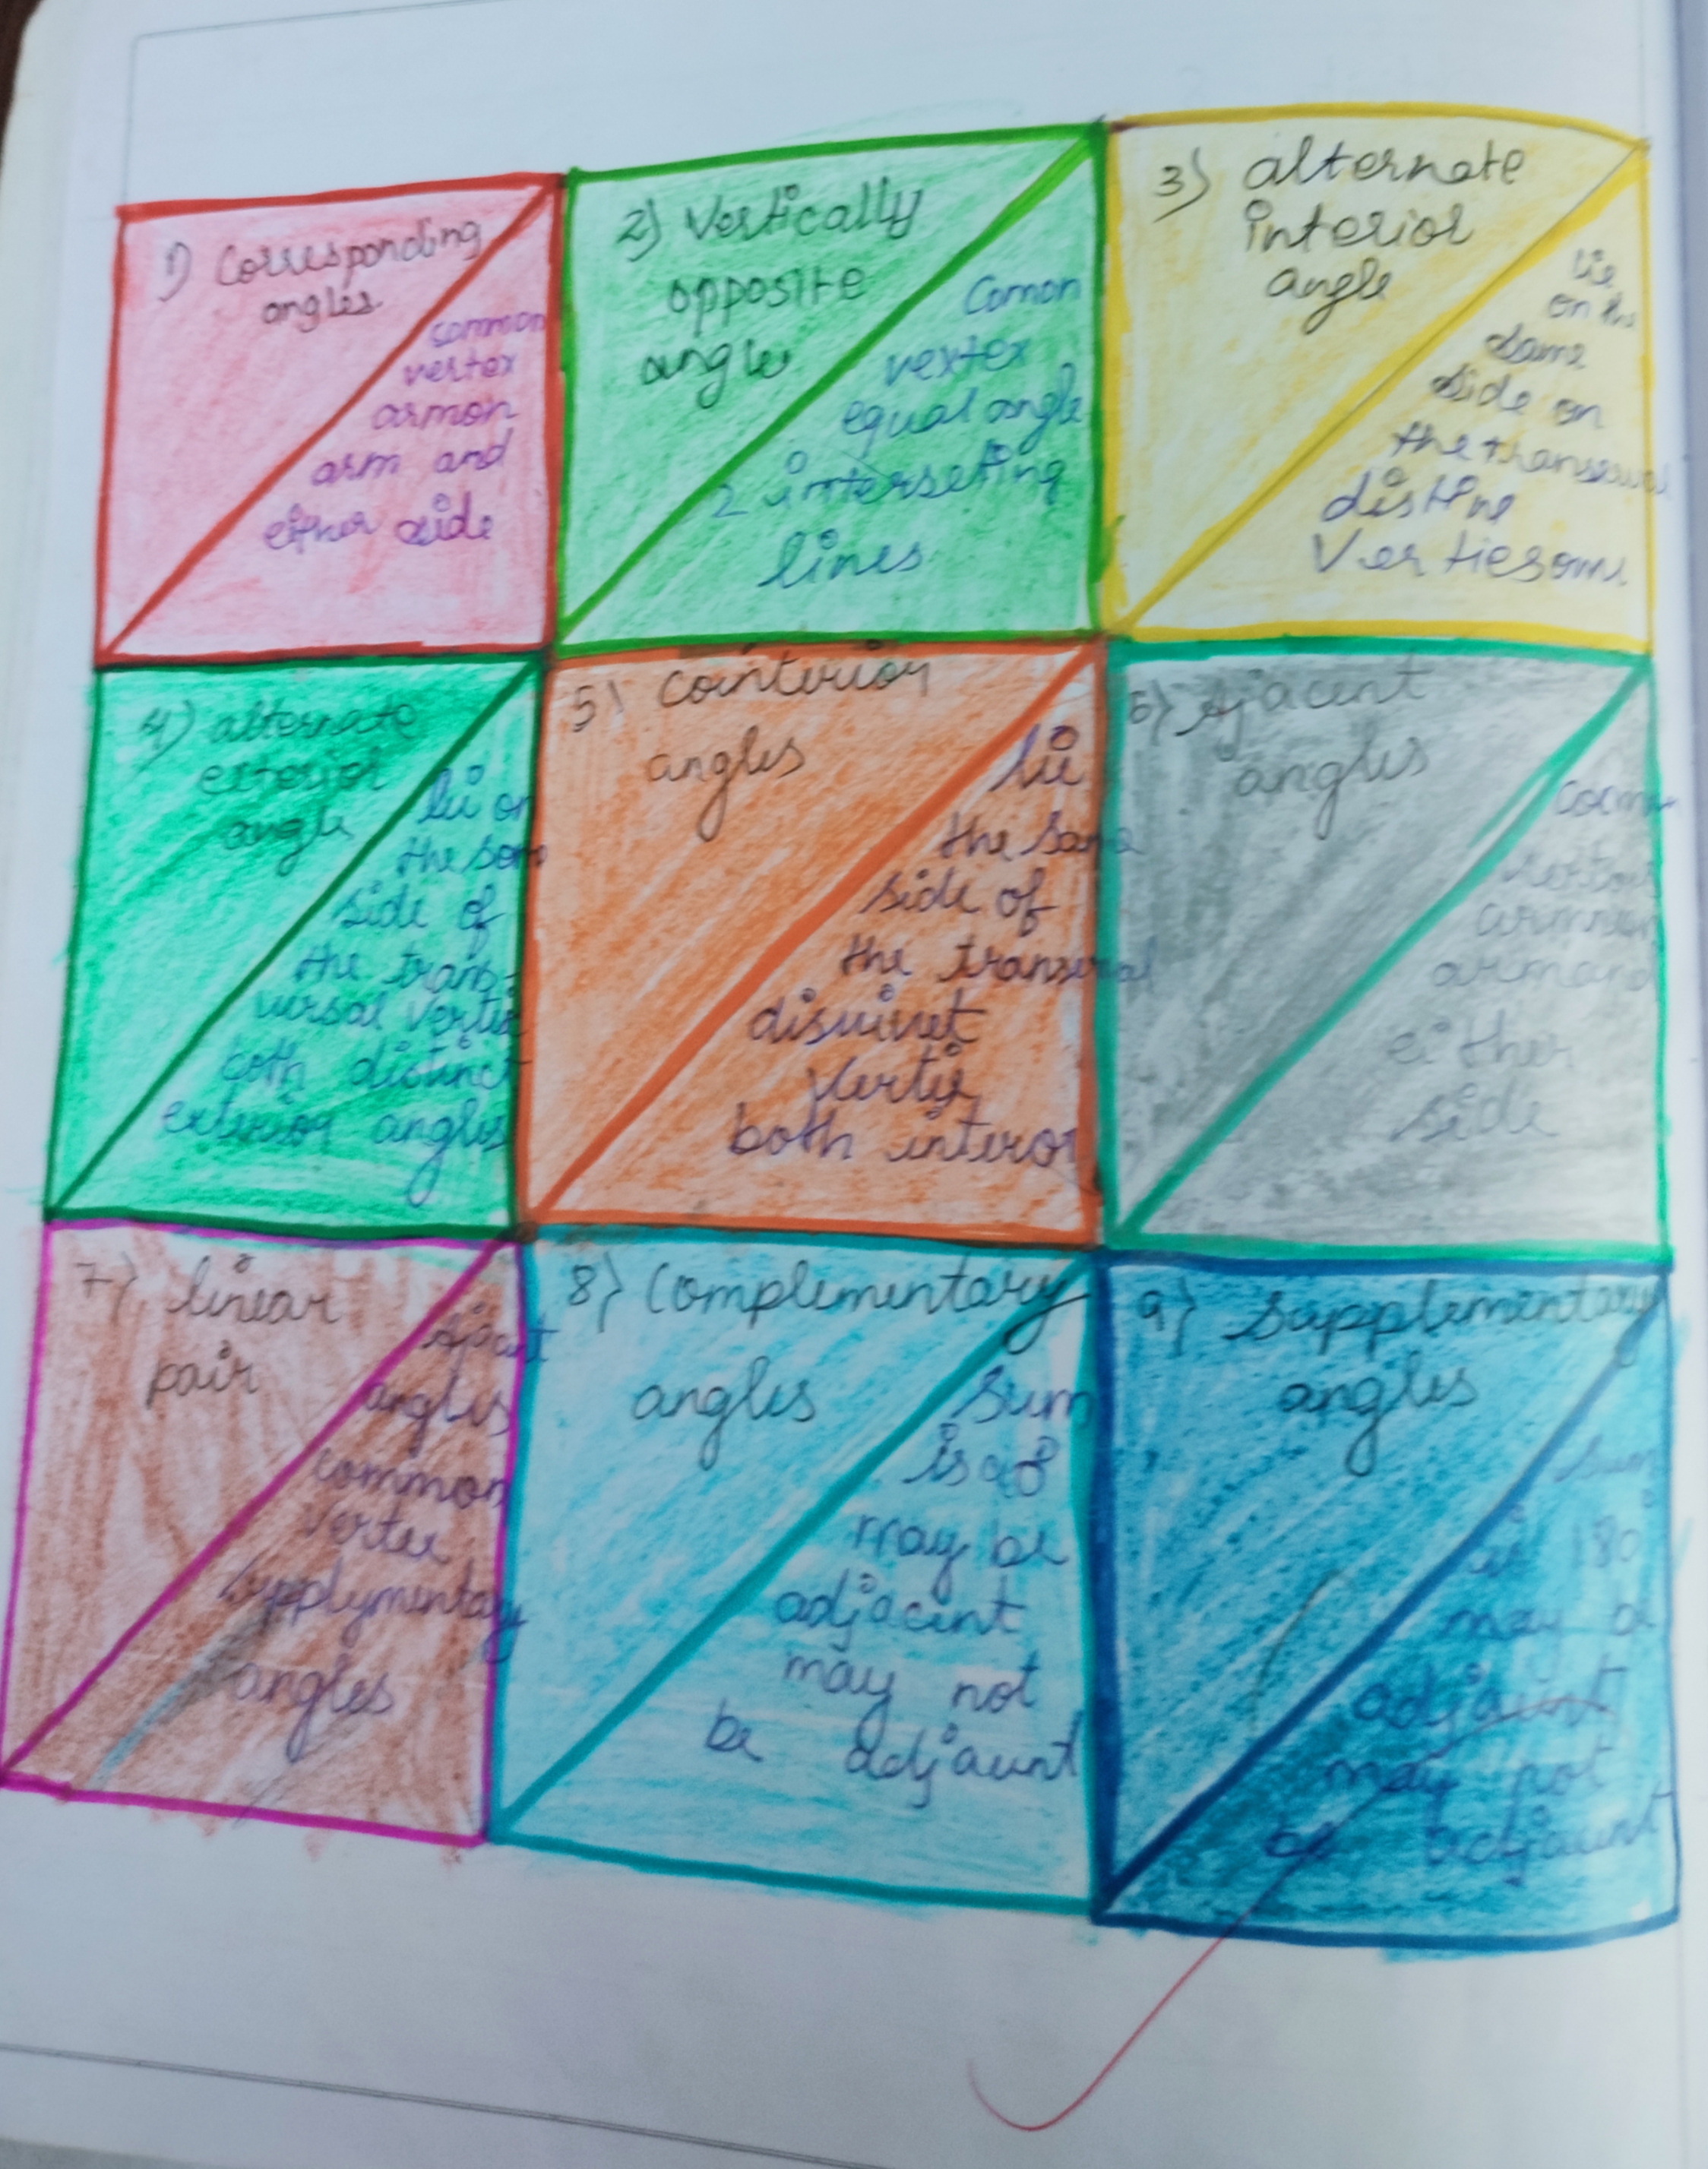 1) Corresponding
angles
common
vertex
armon
arm and
either side
2) Vertically
opposite
angle
Comon
vextex
equal angle
2 interseting
lines
3) alternate
interior
angle
lie
on the
same
side on
the
distine
4) alternate
exterior
angle
lie on
the som
side of
the trans-
versal vertix
coth distinct
exterior angles
5) Cointerior
angles
lie
the same
side of
the transveral
vertix
both interor
6) Ajacent
angles
armand
either
side
7) linear
pair
angles
common
vertex
supplymentary
angles
8) Complementary
angles
Sum
is 90°
may be
adjacent
may not
be adjacent
9) Supplementary
angles
Sum
is 180
may be
adjacent
may not
be adjacent